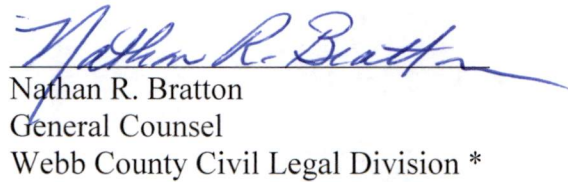 Nathan R. Bratton
Nathan R. Bratton
General Counsel
Webb County Civil Legal Division *